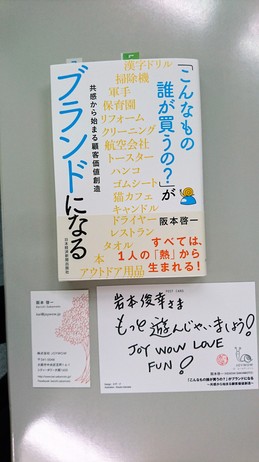 「こんなもの
誰が買うの?」が
ブランドになる
共感から始まる顧客価値創造
漢字ドリル
掃除機
軍手
保育園
リフォーム
クリーニング
航空会社
トースター
ハンコ
ゴムシート
猫カフェ
キャンドル
ドライヤー
レストラン
タオル
本
アウトドア用品
阪本啓一
すべては、
1人の「熱」から
生まれる!
日本経済新聞出版社
阪本 啓一
POST CARD
岩本俊幸さま
もっと遊んじゃいましょう!
JOY WOW LOVE
FUN!
「こんなもの誰が買うの?」がブランドになる